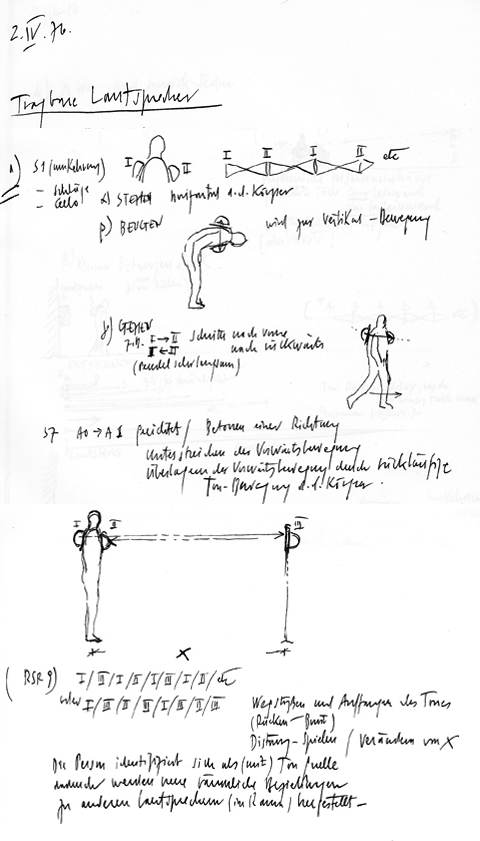 2.IV.76.
Tragbare Lautsprecher
1) S1 (Umkehrung) I II I II I II etc
- Schläge
- Cello
α) STEHEN horizontal a.d. Körper
β) BEUGEN wird zur Vertikal-Bewegung
γ) GEHEN
z.B. I → II Schritte nach vorne
I ← II nach rückwärts
(Pendel sehr langsam)
S7 A0 → A1 gerichtet / Betonen einer Richtung
Unterstreichen der Vorwärtsbewegung
Überlagern der Vorwärtsbewegung durch rückläufige
Ton-Bewegung a.d. Körper.
I II III
X
(RSR 9) I/III/I/II/I/III/I/II/etc
oder I/II/II/III/I/II/II/III
Wegstoßen und Auffangen des Tones
(Rücken - Brust)
Distanz-Spielen / Verändern von X
Die Person identifiziert sich als (mit) Tonquelle
dadurch werden neue räumliche Beziehungen
zu anderen Lautsprechern (im Raum) hergestellt -